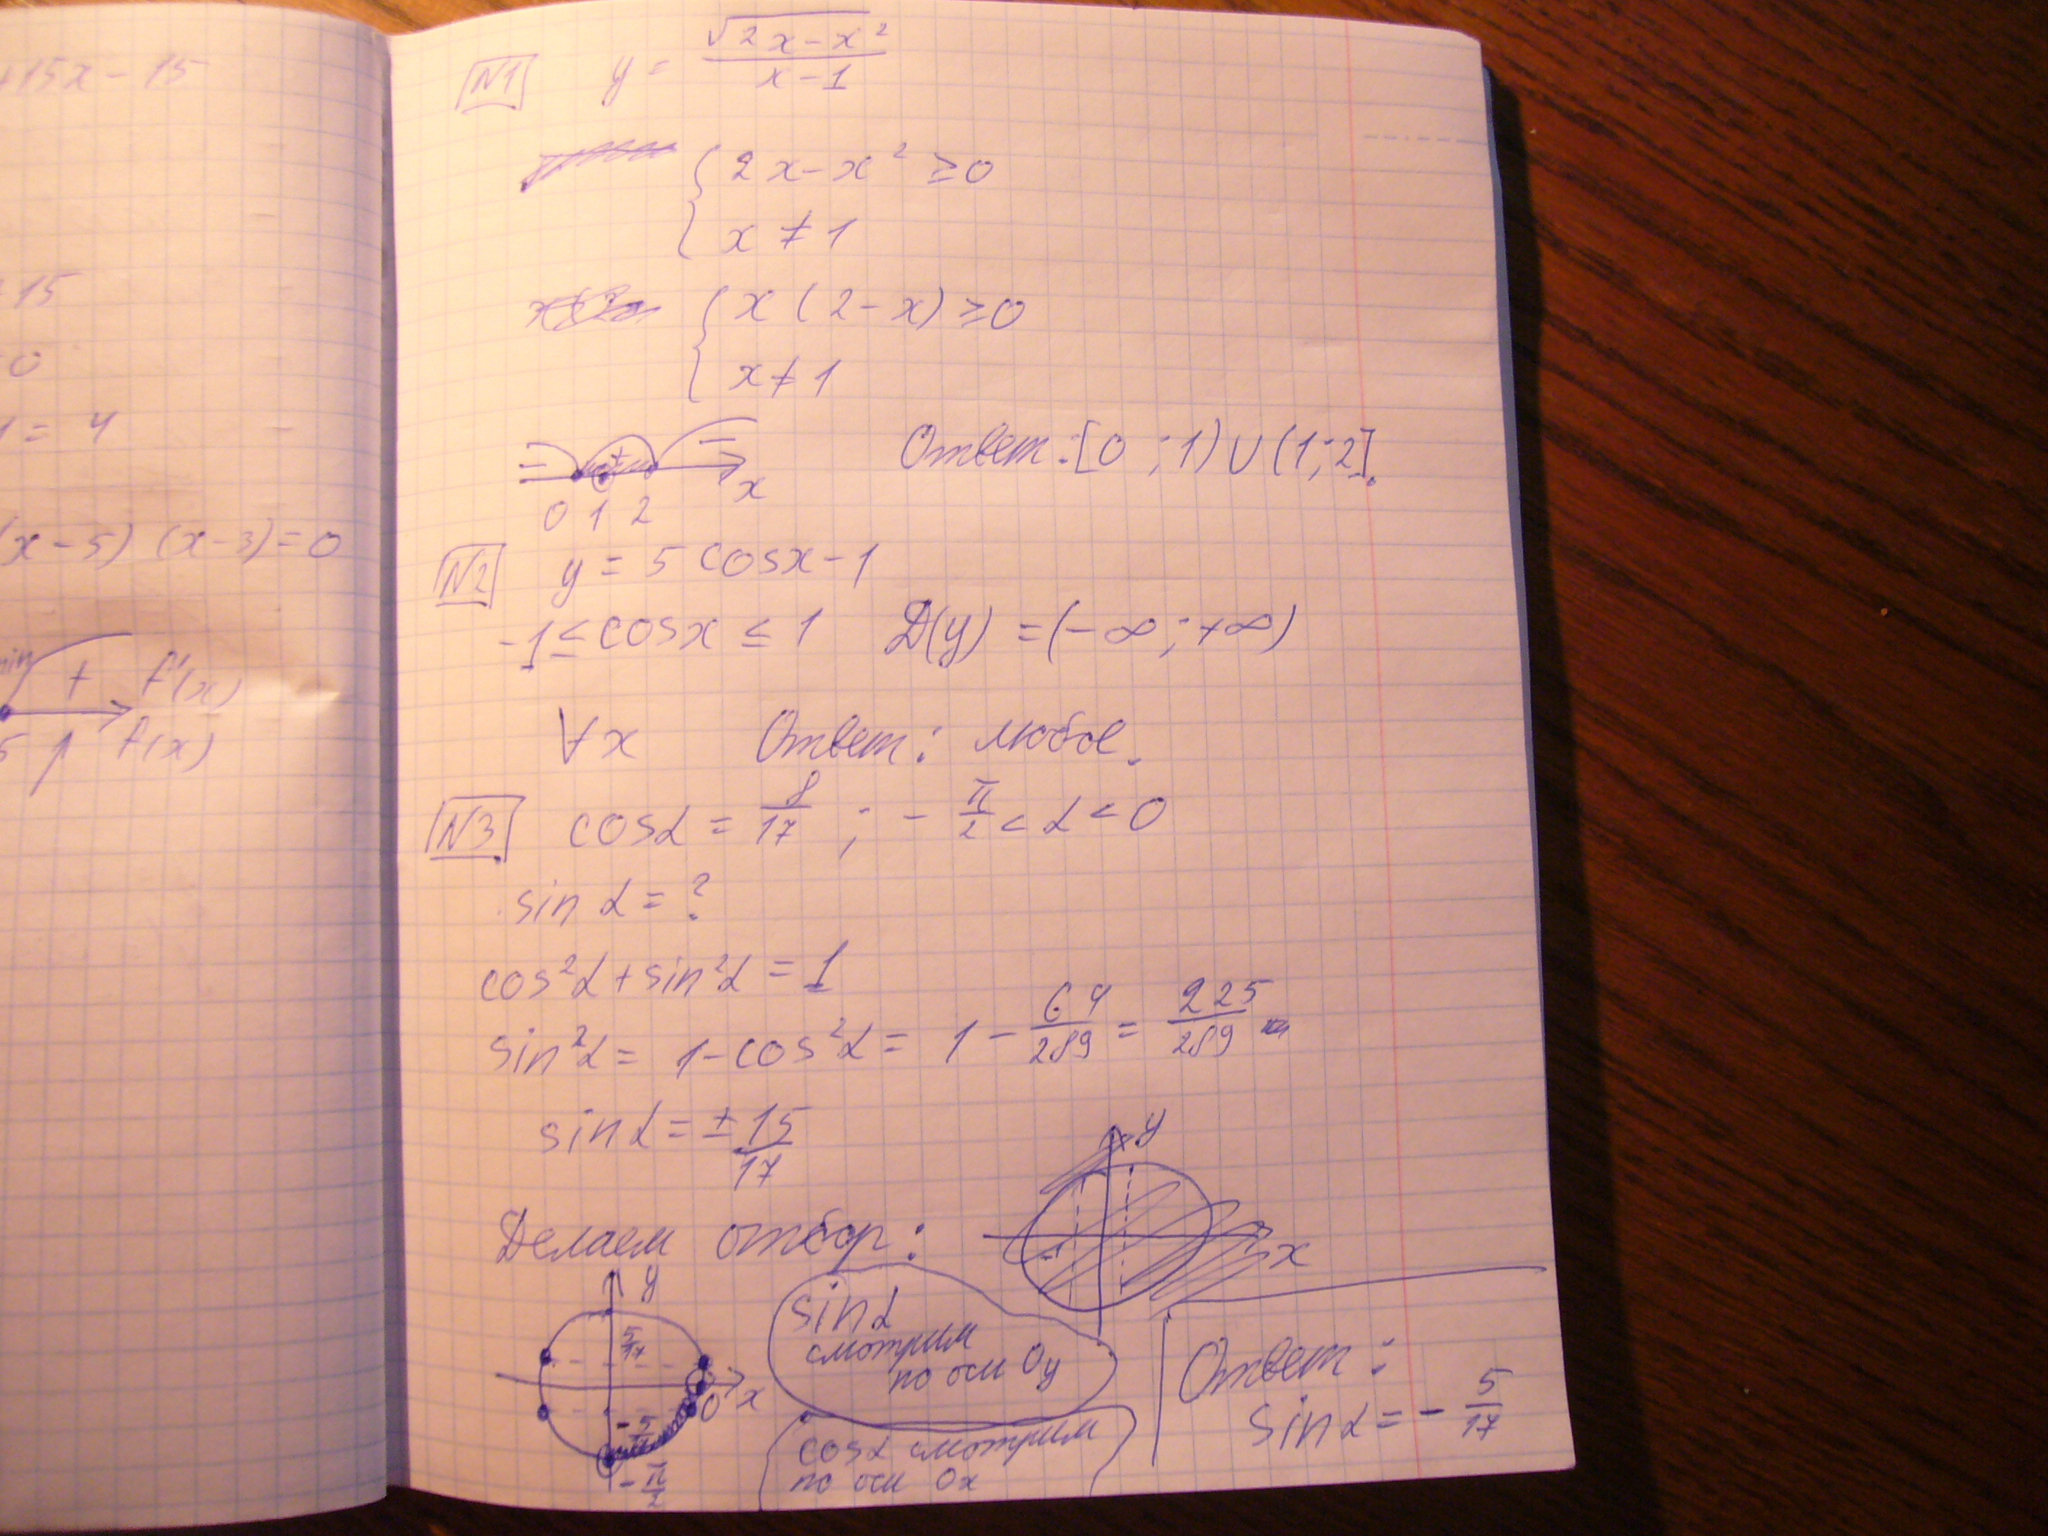 +15x - 15
15
0
1 = 4
(x - 5) (x - 3) = 0
min + f'(x)
5 f(x)
N1 y = √(2x - x²) / (x - 1)
{ 2x - x² ≥ 0
x ≠ 1
{ x (2 - x) ≥ 0
x ≠ 1
- + - x
0 1 2
Ответ: [0 ; 1) ∪ (1; 2].
N2 y = 5 cosx - 1
-1 ≤ cosx ≤ 1 D(y) = (-∞; +∞)
∀x Ответ: любое.
N3 cosα = 8/17 ; - π/2 < α < 0
sin α = ?
cos²α + sin²α = 1
sin²α = 1 - cos²α = 1 - 64/289 = 225/289
sinα = ± 15/17
y
x
Делаем отбор:
y
5/17
x
0
- 5/17
- π/2
sinα
смотрим
по оси Oy
cosα смотрим
по оси Ox
Ответ:
sinα = - 5/17